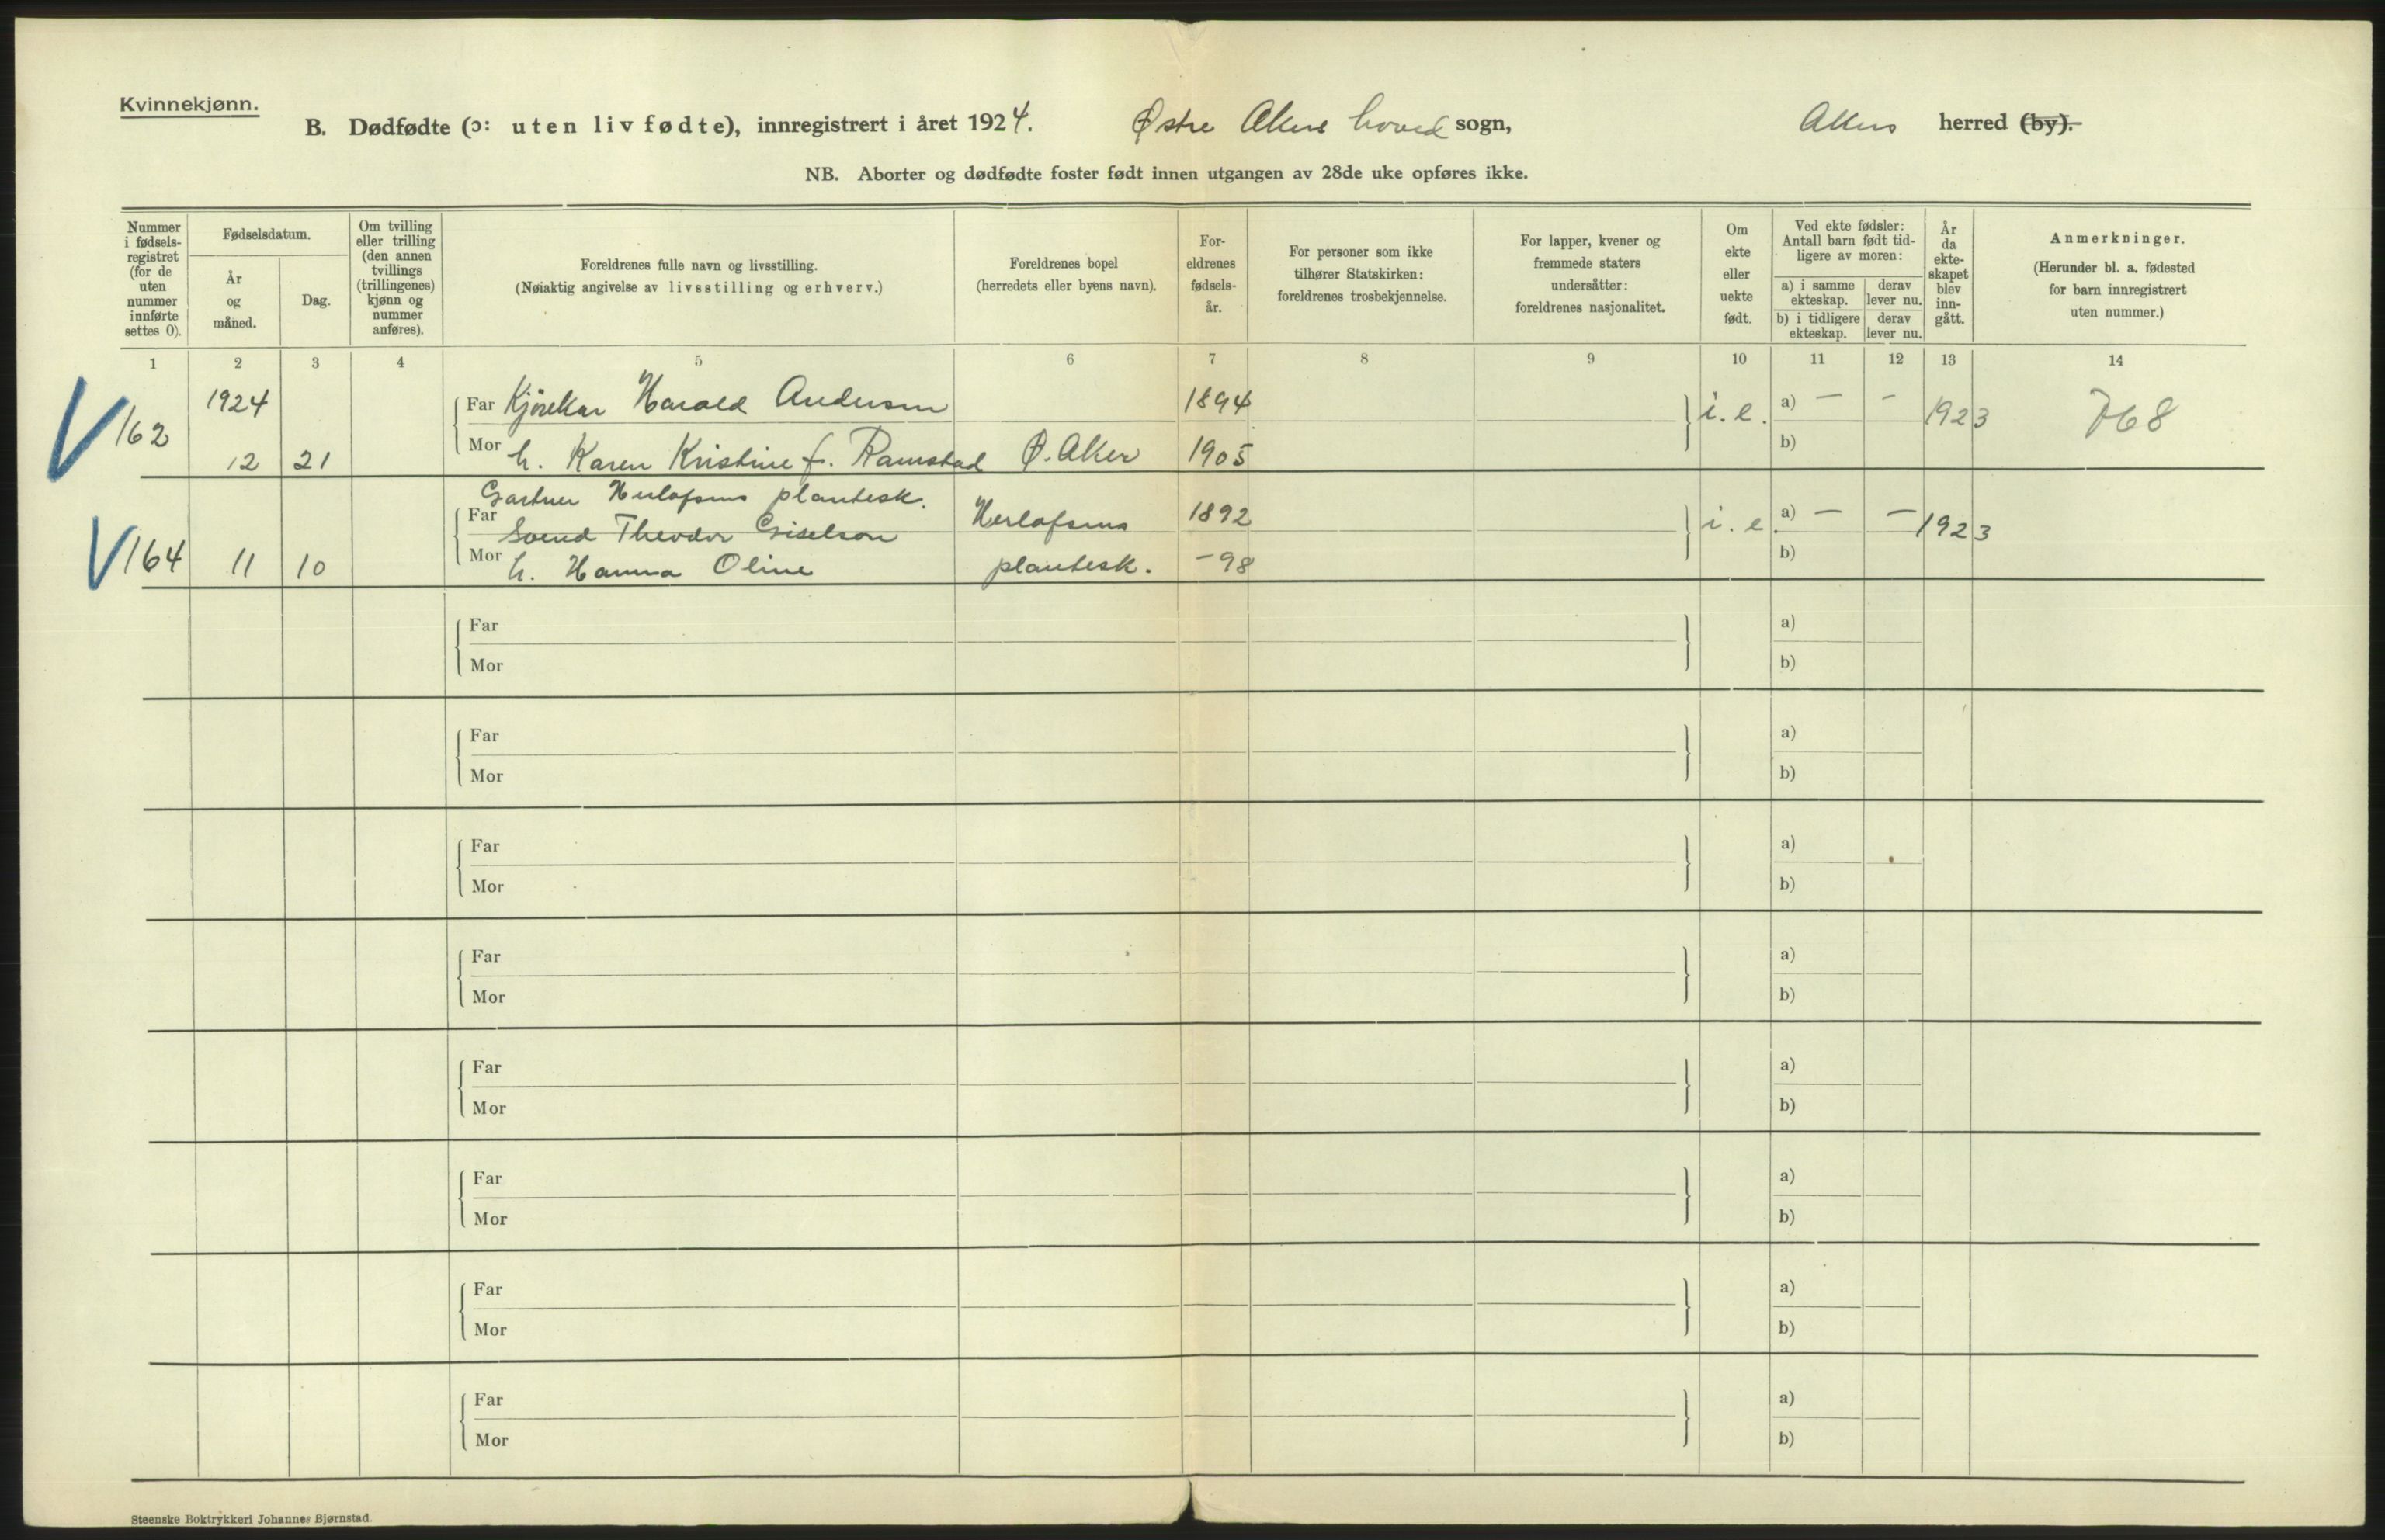 Kvinnekjønn.
B. Dødfødte (ɔ: uten liv fødte), innregistrert i året 1924. Østre Akers hoved sogn, Akers herred (by).
NB. Aborter og dødfødte foster født innen utgangen av 28de uke opføres ikke.
Nummer
i fødsels-
registret
(for de
uten
nummer
innførte
settes 0).
Fødselsdatum.
År
og
måned.
Dag.
Om tvilling
eller trilling
(den annen
tvillings
(trillingenes)
kjønn og
nummer
anføres).
Foreldrenes fulle navn og livsstilling.
(Nøiaktig angivelse av livsstilling og erhverv.)
Foreldrenes bopel
(herredets eller byens navn).
For-
eldrenes
fødsels-
år.
For personer som ikke
tilhører Statskirken:
foreldrenes trosbekjennelse.
For lapper, kvener og
fremmede staters
undersåtter:
foreldrenes nasjonalitet.
Om
ekte
eller
uekte
født.
Ved ekte fødsler:
Antall barn født tid-
ligere av moren:
a) i samme
ekteskap.
derav
lever nu.
b) i tidligere
ekteskap.
derav
lever nu.
År
da
ekte-
skapet
blev
inn-
gått.
Anmerkninger.
(Herunder bl. a. fødested
for barn innregistrert
uten nummer.)
1 2 3 4 5 6 7 8 9 10 11 12 13 14
1924 Far Kjørekar Harald Andersen 1894 i. e. a) — - 1923 768
162 12 21 Mor h. Karen Kristine f. Ramstad Ø. Aker 1905 b)
Gartner Herlofsens plantesk.
Far Svend Theodor Herlofsens 1892 i. e. a) — — 1923
164 11 10 Mor h. Hanna Oline plantesk. -98 b)
Far a)
Mor b)
Far a)
Mor b)
Far a)
Mor b)
Far a)
Mor b)
Far a)
Mor b)
Far a)
Mor b)
Far a)
Mor b)
Far a)
Mor b)
Steenske Boktrykkeri Johannes Bjørnstad.